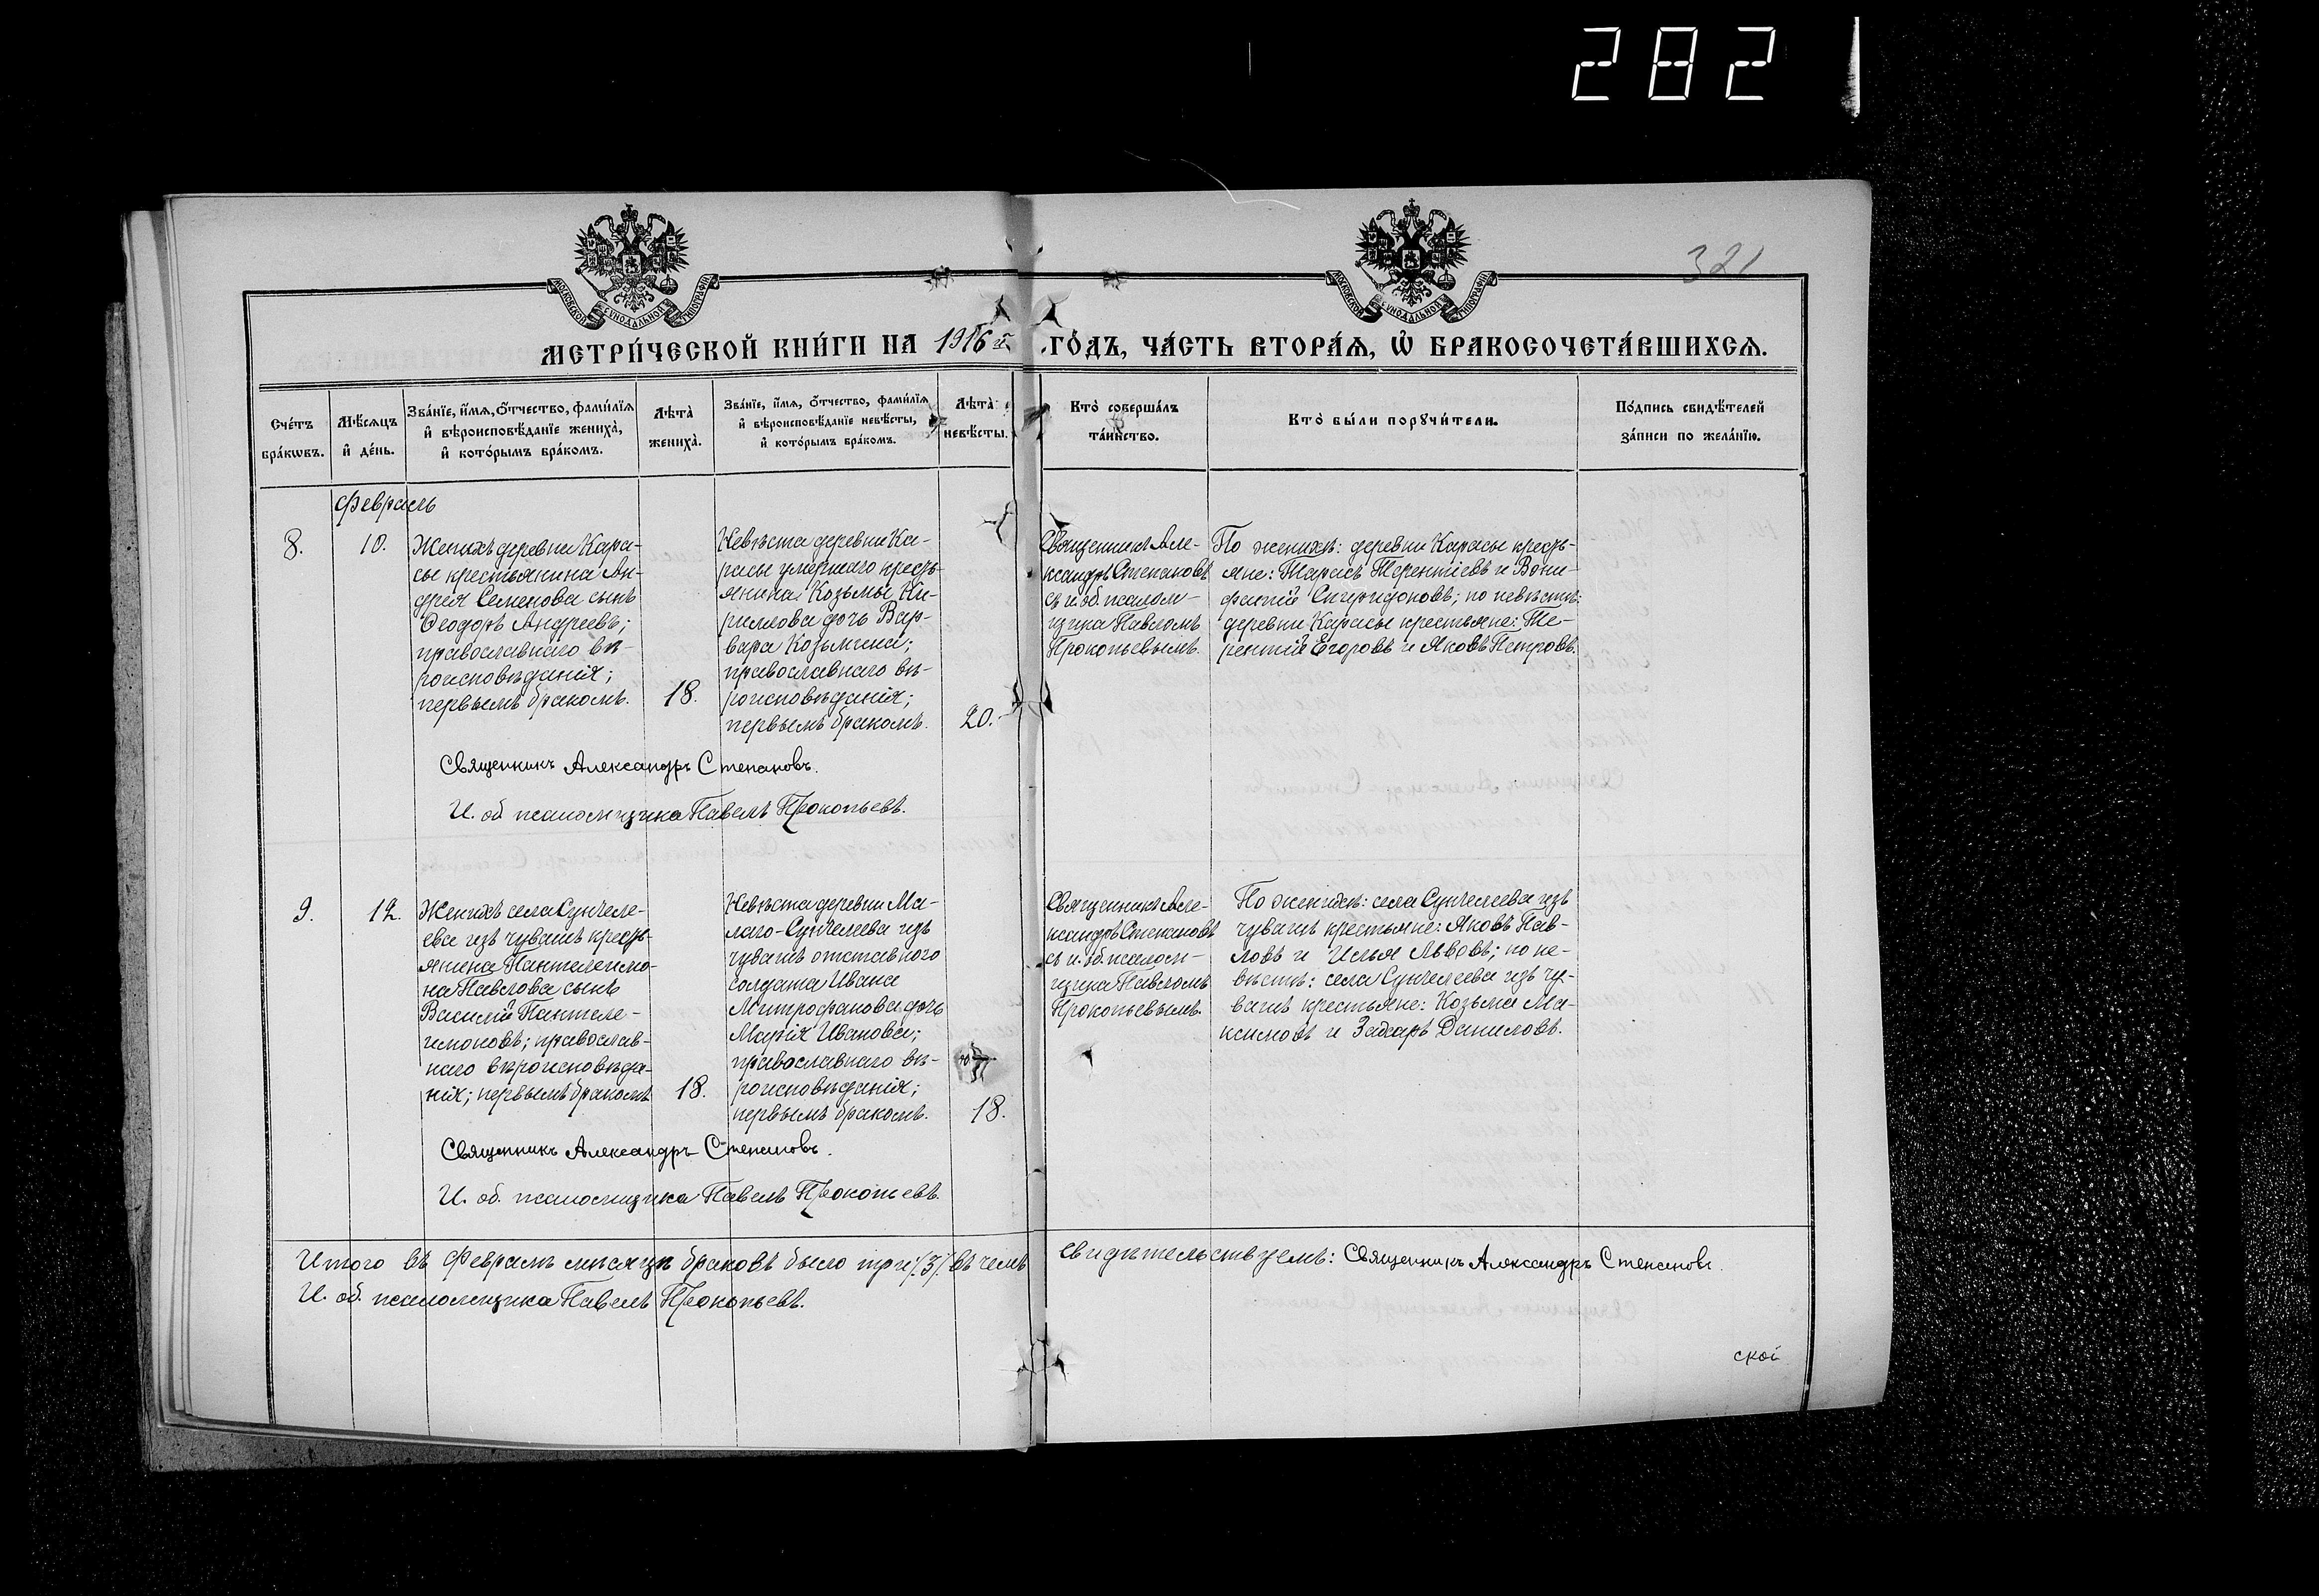 282
321
МОСКОВСКОЙ СѴНОДАЛЬНОЙ ТИПОГРАФІИ
МОСКОВСКОЙ СѴНОДАЛЬНОЙ ТИПОГРАФІИ
МЕТРИ́ЧЕСКОЙ КНИ́ГИ НА 1916 й ГО́ДЪ, ЧА́СТЬ ВТОРА́Я, Ѡ БРАКОСОЧЕТА́ВШИХСЯ.
Сче́тъ
бра́кѡвъ.
Мѣ́сяцъ
и҆ де́нь.
Зва́нїе, и҆́мя, ѻ҆́тчество, фами́лїя
и҆ вѣроисповѣ́данїе жениха̀,
и҆ кото́рымъ бра́комъ.
Лѣта̀
жениха̀.
Зва́нїе, и҆́мя, ѻ҆́тчество, фами́лїя
и҆ вѣроисповѣ́данїе невѣ́сты,
и҆ кото́рымъ бра́комъ.
Лѣта̀
невѣ́сты.
Кто̀ соверша́лъ
та́инство.
Кто̀ бы́ли порꙋчи́тели.
По́дпись свидѣ́телей
за́писи по жела́нїю.
Февраль
8.
10.
Женихъ деревни Кара-
сы крестьянина Ан-
дрея Семенова сынъ
Ѳеодоръ Андреевъ;
православнаго вѣ-
роисповѣданія;
первымъ бракомъ.
18.
Невѣста деревни Ка-
расы умершаго кресть-
янина Козьмы Ки-
риллова дочь Вар-
вара Козьмина;
православнаго вѣ-
роисповѣданія;
первымъ бракомъ.
20.
Священникъ Але-
ксандръ Степановъ
съ и. об. псалом-
щика Павломъ
Прокопьевымъ.
По женихѣ: деревни Карасы кресть-
яне: Тарасъ Терентіевъ и Вони-
фатій Спиридоновъ; по невѣстѣ:
деревни Карасы крестьяне: Те-
рентій Егоровъ и Яковъ Петровъ.
Священникъ Александръ Степановъ.
И. об псаломщика Павелъ Прокопьевъ.
9.
12.
Женихъ села Сунчеле-
ева изъ чувашъ кресть-
янина Пантелеимо-
на Павлова сынъ
Василій Пантеле-
имоновъ; православ-
наго вѣроисповѣда-
нія; первымъ бракомъ
18.
Невѣста деревни Ма-
лаго-Сунчелеева изъ
чувашъ отставного
солдата Ивана
Митрофанова дочь
Марія Иванова;
православнаго вѣ-
роисповѣданія;
первымъ бракомъ.
18.
Священникъ Але-
ксандръ Степановъ
съ и. об. псалом-
щика Павломъ
Прокопьевымъ.
По женихѣ: села Сунчелеева изъ
чувашъ крестьяне: Яковъ Пав-
ловъ и Илья Львовъ; по не-
вѣстѣ: села Сунчелеева изъ чу-
вашъ крестьяне: Козьма Ма-
ксимовъ и Захаръ Даниловъ.
Священникъ Александръ Степановъ.
И. об. псаломщика Павелъ Прокопьевъ.
Итого въ Февралѣ мѣсяцѣ браковъ было три /3/ въ чемъ свидѣтельствуемъ: Священникъ Александръ Степановъ.
И. об. псаломщика Павелъ Прокопьевъ.
ской